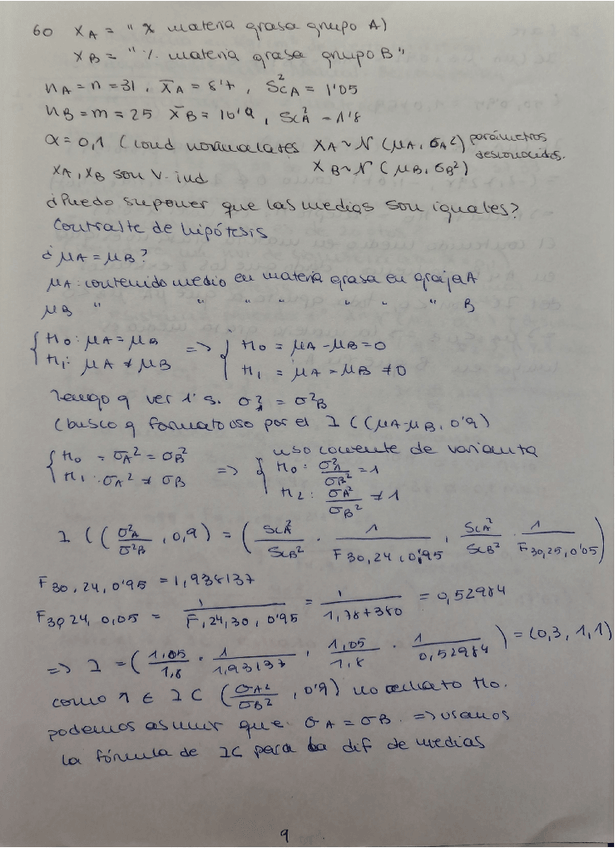 60 XA = " % materia grasa grupo A)
XB = "% materia grasa grupo B"
nA = n = 31, X̄A = 8'7, Sc²A = 1'05
nB = m = 25 X̄B = 10'9, Sc²A = 1'8
α = 0,1 (cond normalates XA ~ N (μA, σA²) parámetros desconocidos.
XA, XB son v. ind. XB ~ N (μB, σB²)
¿Puedo suponer que las medias son iguales?
Contraste de hipótesis
¿ μA = μB?
μA: contenido medio en materia grasa en granja A
μB " " " " " " " B
{ H0: μA = μB H1: μA ≠ μB => { H0 = μA - μB = 0 H1 = μA - μB ≠ 0
Tengo q ver 1º si σ²A = σ²B
(busco q formato uso por el I ((μA-μB, 0'9)
{ H0 = σA² = σB² H1: σA² ≠ σB => { uso cociente de varianza H0: σ²A/σB² = 1 H1: σA²/σB² ≠ 1
I ((σ²A/σ²B, 0,9) = (ScA²/ScB² · 1/F30,24,0'95, ScA²/ScB² · 1/F30,25,0'05)
F30,24,0'95 = 1,938137
F30,24,0,05 = 1/F,24,30,0'95 = 1/1,787380 = 0,52984
=> I = (1,05/1,8 · 1/1,93137, 1,05/1,8 · 1/0,52984) = (0,3, 1,1)
como 1 ∈ IC (σA²/σB², 0'9) no rechazo H0.
podemos asumir que σA = σB. => usamos
la fórmula de IC para la dif de medias
9